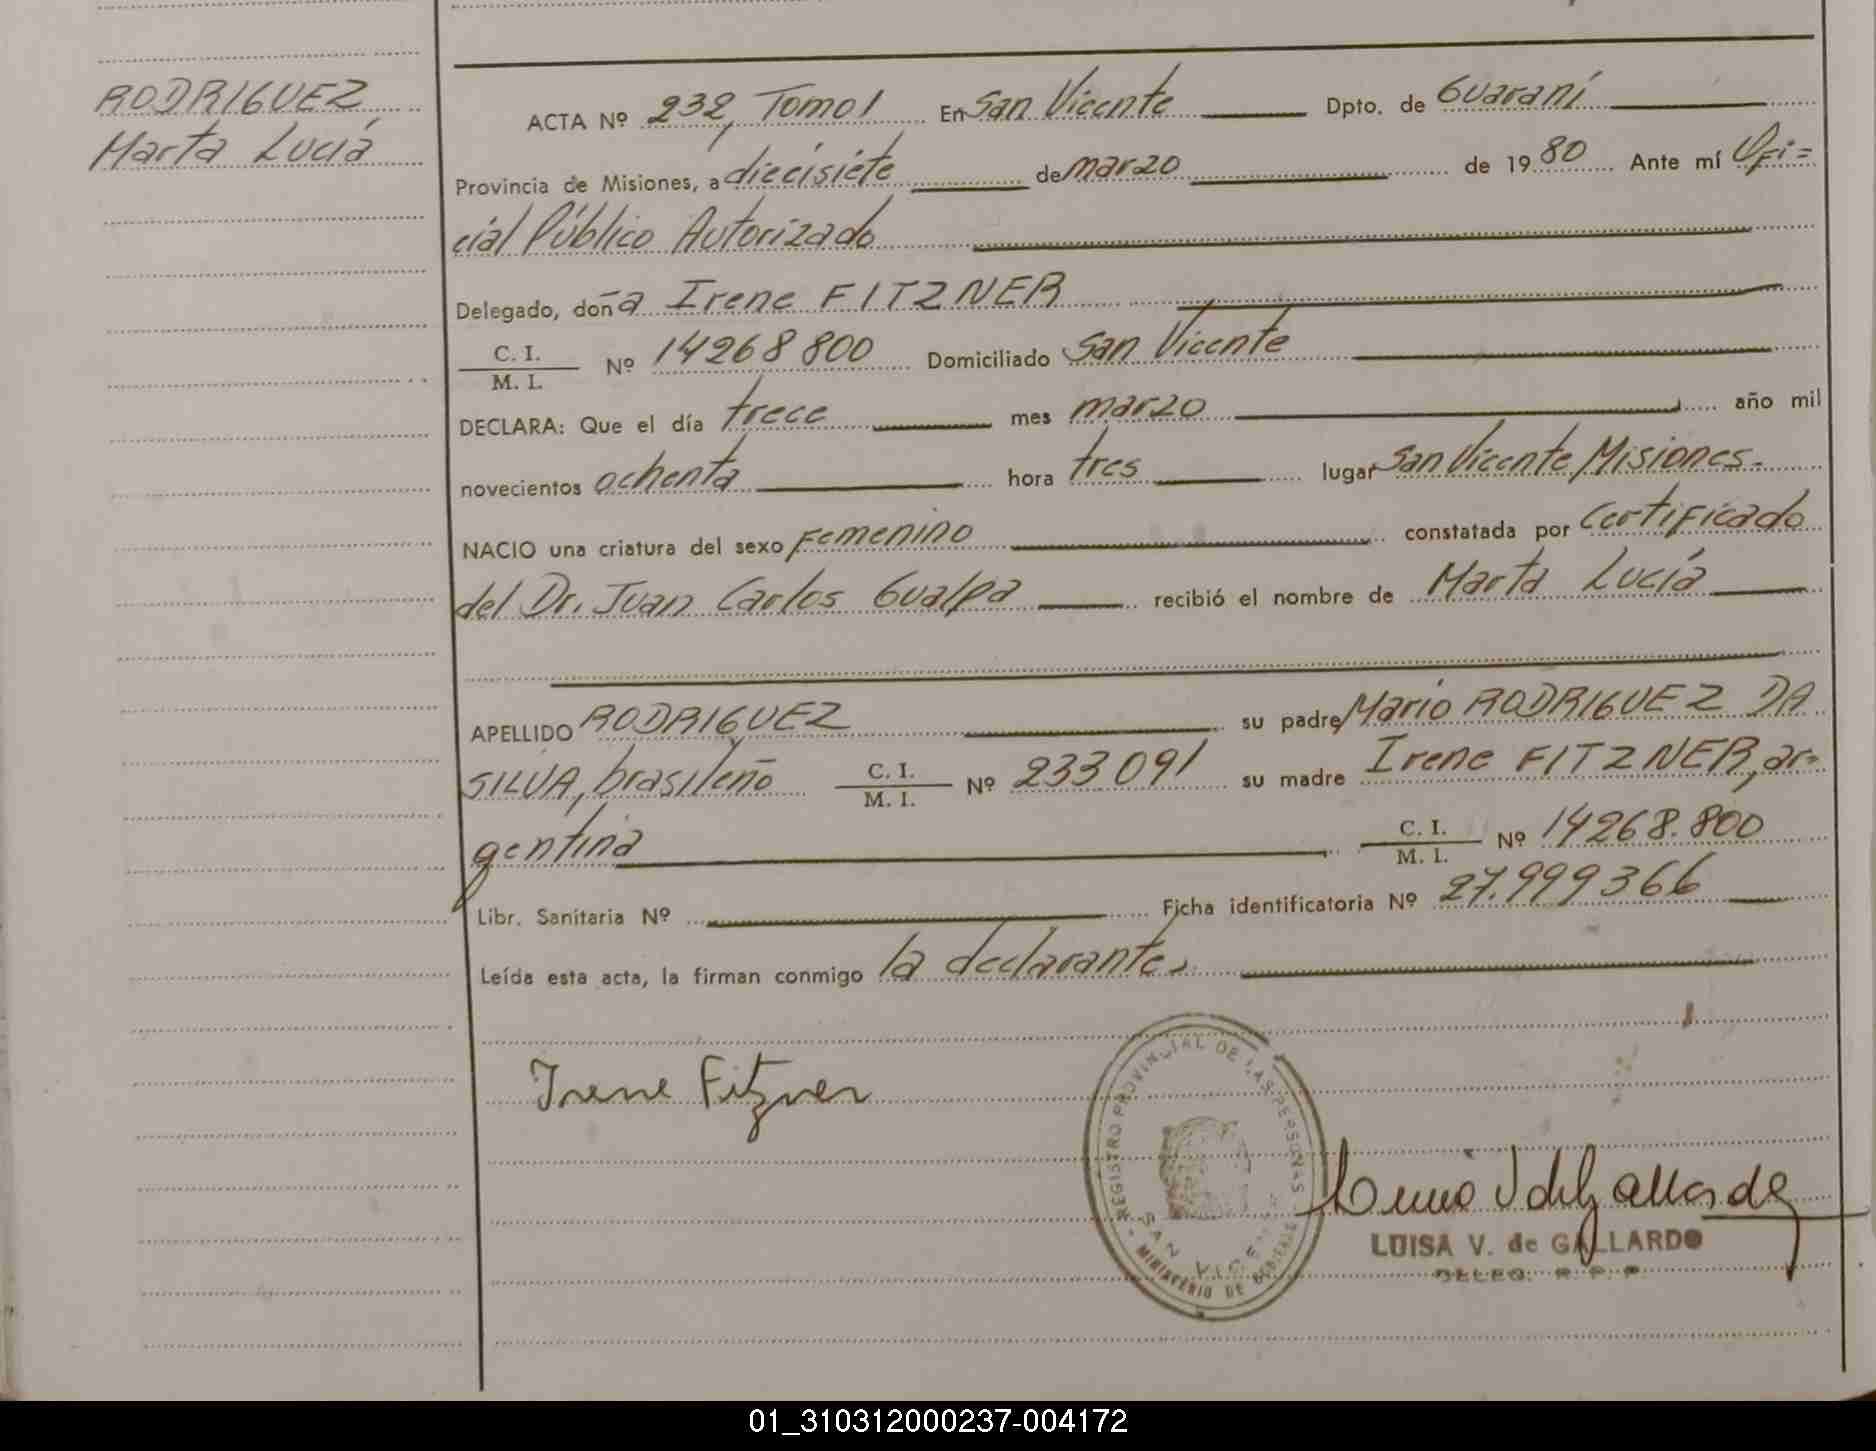 RODRIGUEZ
Marta Lucía
ACTA Nº 232, Tomo 1 En San Vicente Dpto. de Guaraní
Provincia de Misiones, a diecisiete de marzo de 1980 Ante mí Ofi=
cial Público Autorizado
Delegado, doña Irene FITZNER
C. I.
M. I. Nº 14268800 Domiciliado San Vicente
DECLARA: Que el día trece mes marzo año mil
novecientos ochenta hora tres lugar San Vicente Misiones.
NACIO una criatura del sexo Femenino constatada por Certificado
del Dr. Juan Carlos Gualpa recibió el nombre de Marta Lucía
APELLIDO RODRIGUEZ su padre Mario RODRIGUEZ DA
SILVA, brasileño C. I.
M. I. Nº 233.091 su madre Irene FITZNER, ar=
gentina C. I.
M. I. Nº 14268.800
Libr. Sanitaria Nº Ficha identificatoria Nº 27.999366
Leída esta acta, la firman conmigo la declarante.
Irene Fitzner
REGISTRO PROVINCIAL DE LAS PERSONAS
SAN VICENTE
MINISTERIO DE GOBIERNO
LUISA V. de GALLARDO
DELEG. R. P. P.
01_310312000237-004172